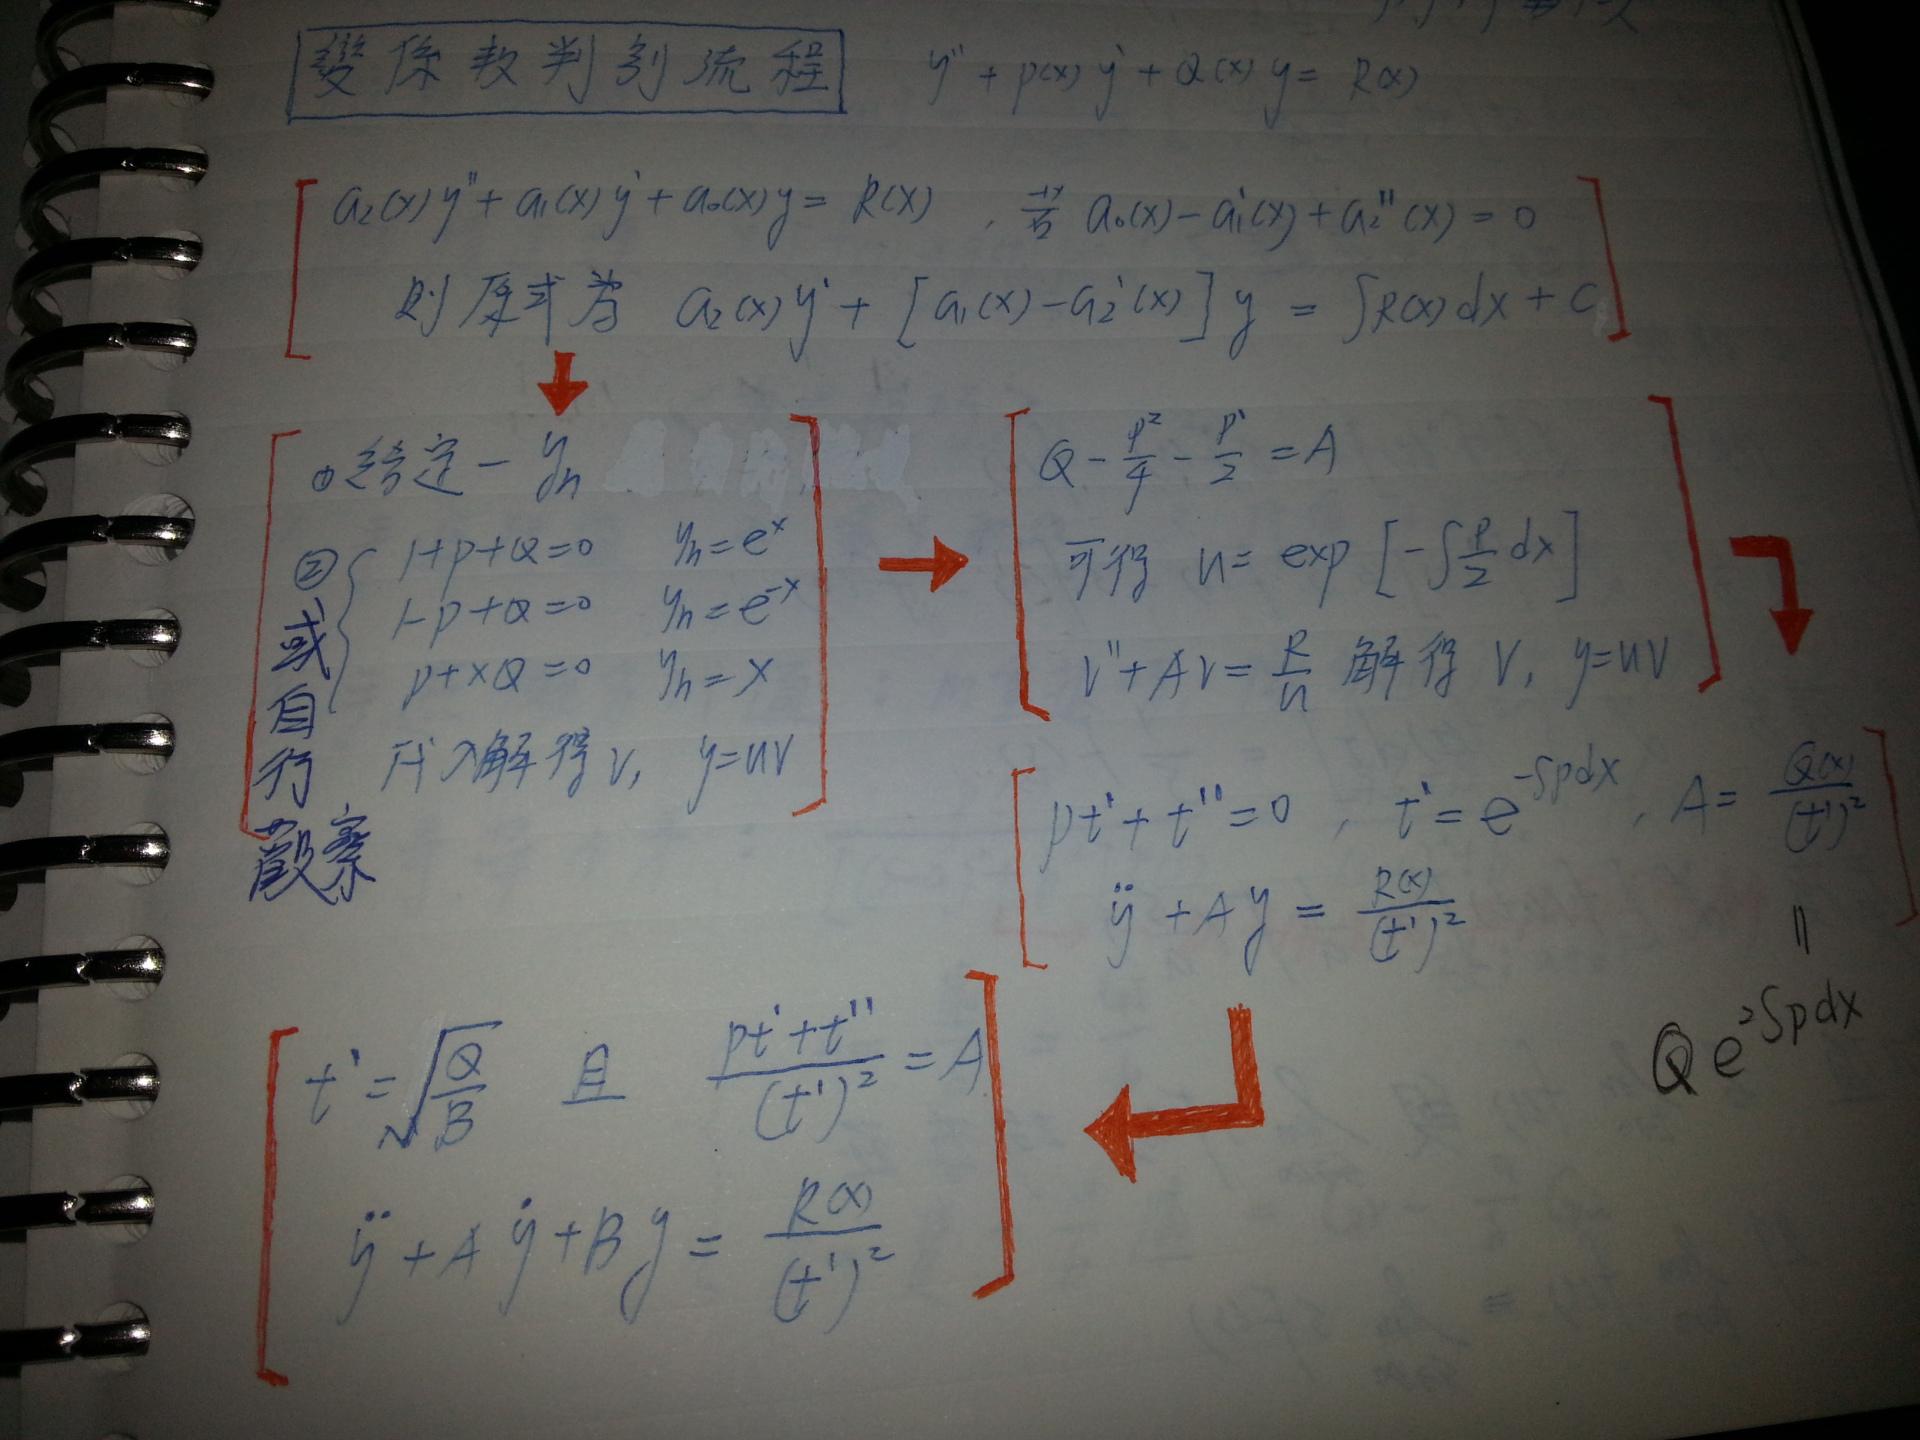 變係數判別流程 y''+p(x)y'+Q(x)y=R(x)
a₂(x)y''+a₁(x)y'+a₀(x)y=R(x), 若 a₀(x)-a₁'(x)+a₂''(x)=0
則原式為 a₂(x)y'+[a₁(x)-a₂'(x)]y=∫R(x)dx+C
①給定一yₕ
②或自行觀察
1+p+Q=0 yₕ=eˣ
1-p+Q=0 yₕ=e⁻ˣ
p+xQ=0 yₕ=x
代入解得v, y=uv
Q-p²/4-p'/2=A
可得 u=exp[-∫p/2 dx]
v''+Av=R/u 解得 v, y=uv
pt'+t''=0, t'=e^(-∫pdx), A=Q(x)/(t')²
=
Qe^(2∫pdx)
ÿ+Ay=R(x)/(t')²
t'=√(Q/B) 且 (pt'+t'')/(t')²=A
ÿ+Aẏ+By=R(x)/(t')²